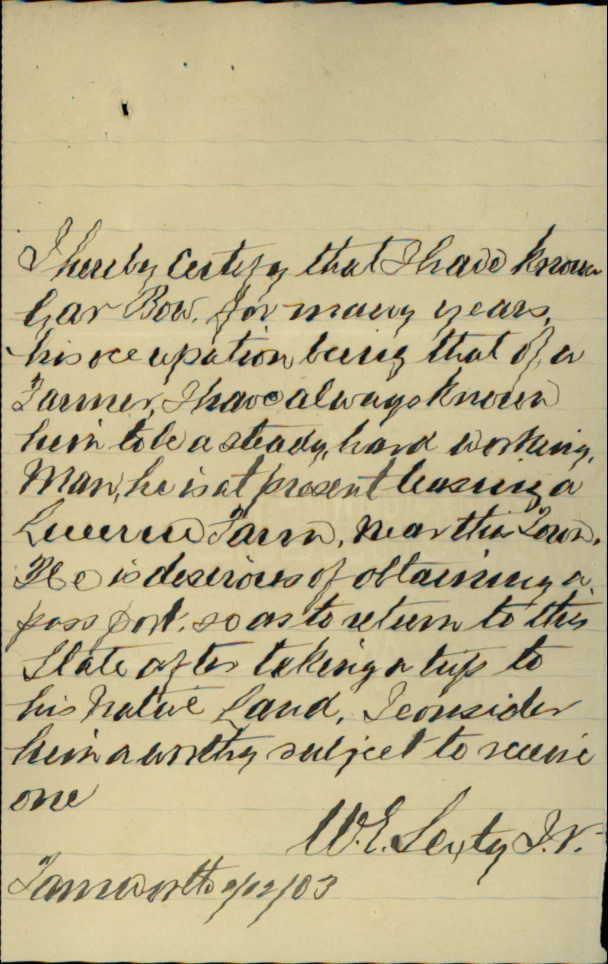 I hereby certify that I have known
Gar Bow. for many years,
his occupation being that of a
Farmer, I have always known
him to be a steady, hard working,
Man, he is at present leasing a
Lucerne Farm, near this Town.
He is desirious of obtaining a
passport. so as to return to this
State after taking a trip to
his Native Land, I consider
him a worthy subject to receive
one
W.E. J.P.
Tamworth 2/12/03